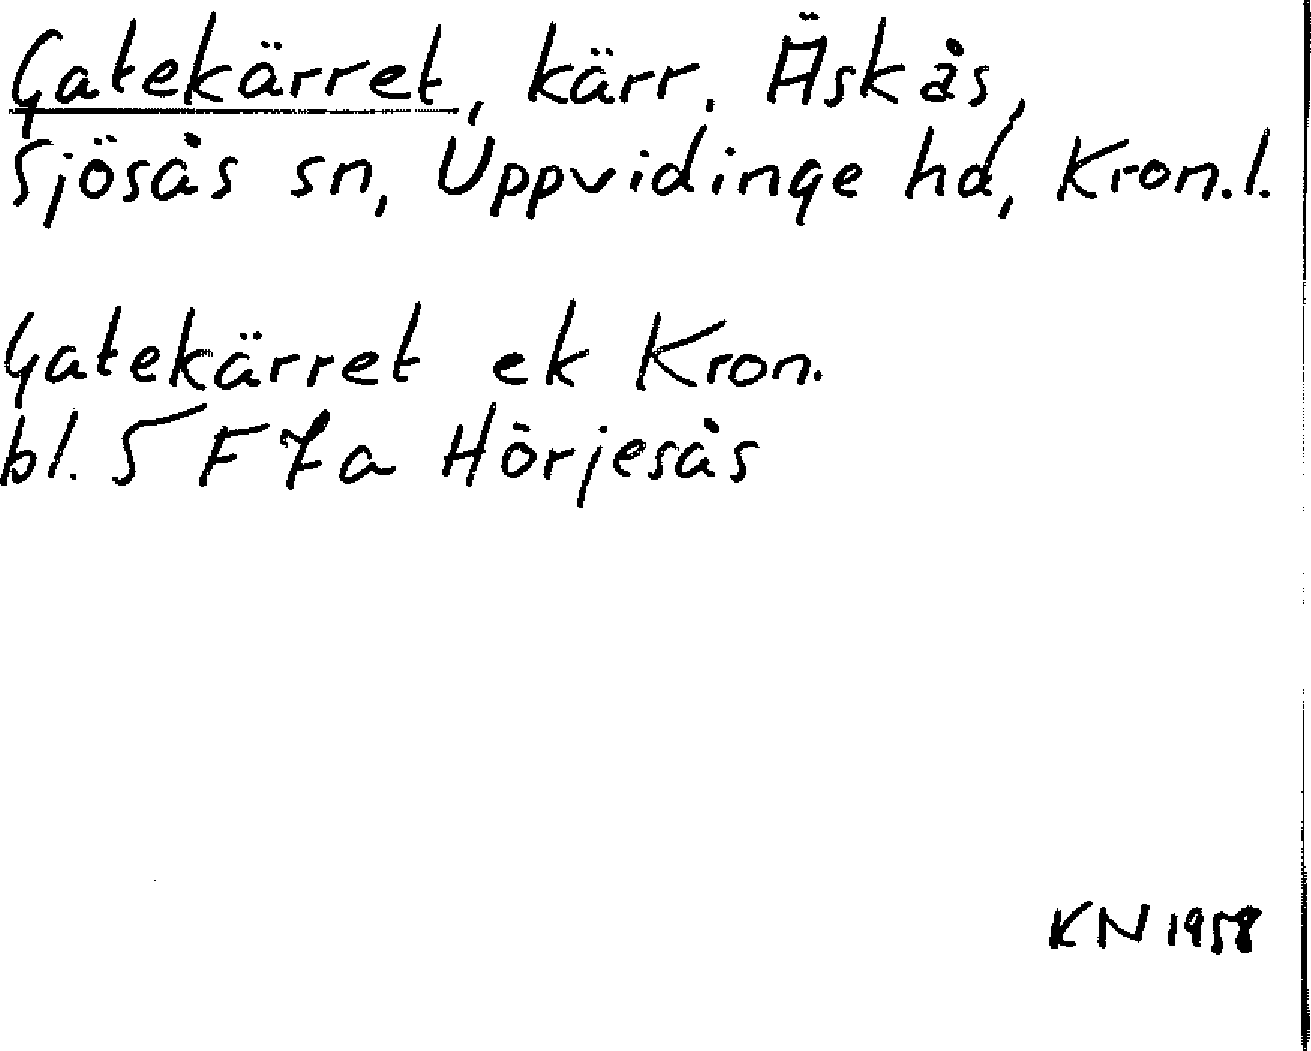 Gatekärret, kärr. Äskås,
Sjösås sn, Uppvidinge hd, Kron.l.
Gatekärret ek Kron.
bl. 5 F 7a Hörjesås
KN 1958